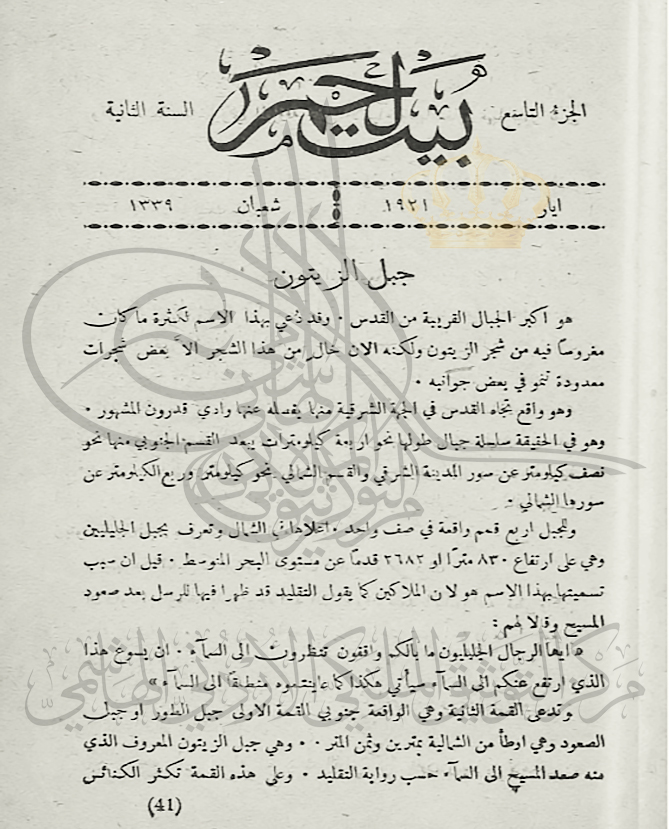 الجزء التاسع
بيت لحم
السنة الثانية
ايار ١٩٢١
شعبان ١٣٣٩
جبل الزيتون
هو اكبر الجبال القريبة من القدس . وقد دُعي بهذا الاسم لكثرة ما كان
مغروسًا فيه من شجر الزيتون ولكنه الان خالٍ من هذا الشجر الاَّ بعض شجرات
معدودة تنمو في بعض جوانبه .
وهو واقع تجاه القدس في الجهة الشرقية منها يفصله عنها وادي قدرون المشهور .
وهو في الحقيقة سلسلة جبال طولها نحو اربعة كيلومترات يبعد القسم الجنوبي منها نحو
نصف كيلومتر عن سور المدينة الشرقي والقسم الشمالي نحو كيلومتر وربع الكيلومتر عن
سورها الشمالي .
وللجبل اربع قمم واقعة في صف واحد . اعلاها في الشمال وتعرف بجبل الجليليين
وهي على ارتفاع ٨٣٠ مترًا او ٢٦٨٢ قدمًا عن مستوى البحر المتوسط . قيل ان سبب
تسميتها بهذا الاسم هو لان الملاكين كما يقول التقليد قد ظهرا فيها للرسل بعد صعود
المسيح وقالا لهم :
« ايها الرجال الجليليون ما بالكم واقفون تنظرون الى السمآء . ان يسوع هذا
الذي ارتفع عنكم الى السمآء سيأتي هكذا كما عاينتموه منطلقًا الى السمآء »
وتدعى القمة الثانية وهي الواقعة جنوبي القمة الاولى جبل الطور او جبل
الصعود وهي اوطأ من الشمالية بمترين وثمن المتر . وهي جبل الزيتون المعروف الذي
منه صعد المسيح الى السمآء حسب رواية التقليد . وعلى هذه القمة تكثر الكنائس
(41)